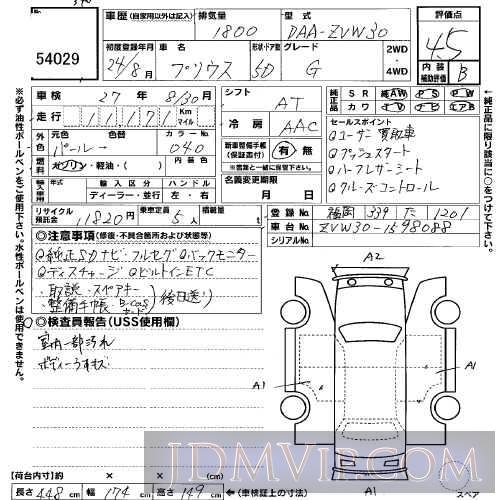 54029
車歴 (自家用以外は記入) 排気量 型式
1800 DAA-ZVW30
評価点
4.5
内装補助評価 B
初度登録年月 車名 形状・ドア数 グレード
24/8 プリウス 5D G 2WD・4WD
車検 27年 8/30月
走行 11171 Km マイル
シフト AT
冷房 AAC
純正品 SR AW PS PW
カワ TV ナビ エアB
外色 元色 色替 カラーNo.
パール→ 040
燃料 ガソリン・軽油・( ) 内装色
新車整備手帳(保証書付) 有・無
※書類と一緒に保管されます。
名義変更期限
月 日
セールスポイント
①ユーザー買取車
②プッシュスタート
③ハーフレザーシート
④クルーズコントロール
輸入車用 年式 輸入区分 ハンドル
ディーラー・並行 左・右
リサイクル預託金 11820円 乗車定員 5人 積載量 t
登録No. 福岡 339 た 1201
車台No. ZVW30-1598088
シリアルNo.
◎注意事項(修復・不具合箇所および状態等)
①純正SDナビ・フルセグ②バックモニター
③ディスチャージ④ビルトインETC
・取説・スペアキー
・整備手帳・B-CASカード 後日送り
◎検査員報告(USS使用欄)
室内一部汚れ
ボディーうすキズ
A2
A1
A1
A1
スペア
【荷台内寸】約 × × (cm)
長さ 448cm 幅 174cm 高さ 149cm ←(車検証上の寸法)
※必ず油性ボールペンをご使用下さい。水性ボールペンは使用できません。
←純正品に限り該当に○をつけて下さい。
JDMVIP.COM